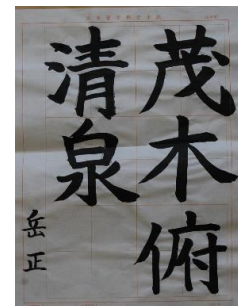 茂木俯
清泉
岳正